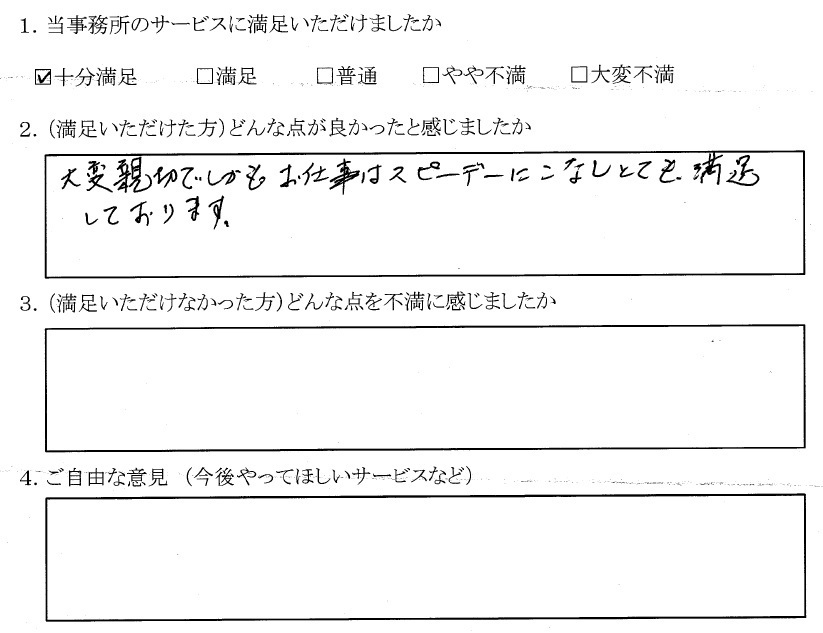 1. 当事務所のサービスに満足いただけましたか
☑十分満足 □満足 □普通 □やや不満 □大変不満
2. (満足いただけた方)どんな点が良かったと感じましたか
大変親切でしかもお仕事はスピーデーにこなしとても満足
しております。
3. (満足いただけなかった方)どんな点を不満に感じましたか
4. ご自由な意見 (今後やってほしいサービスなど)